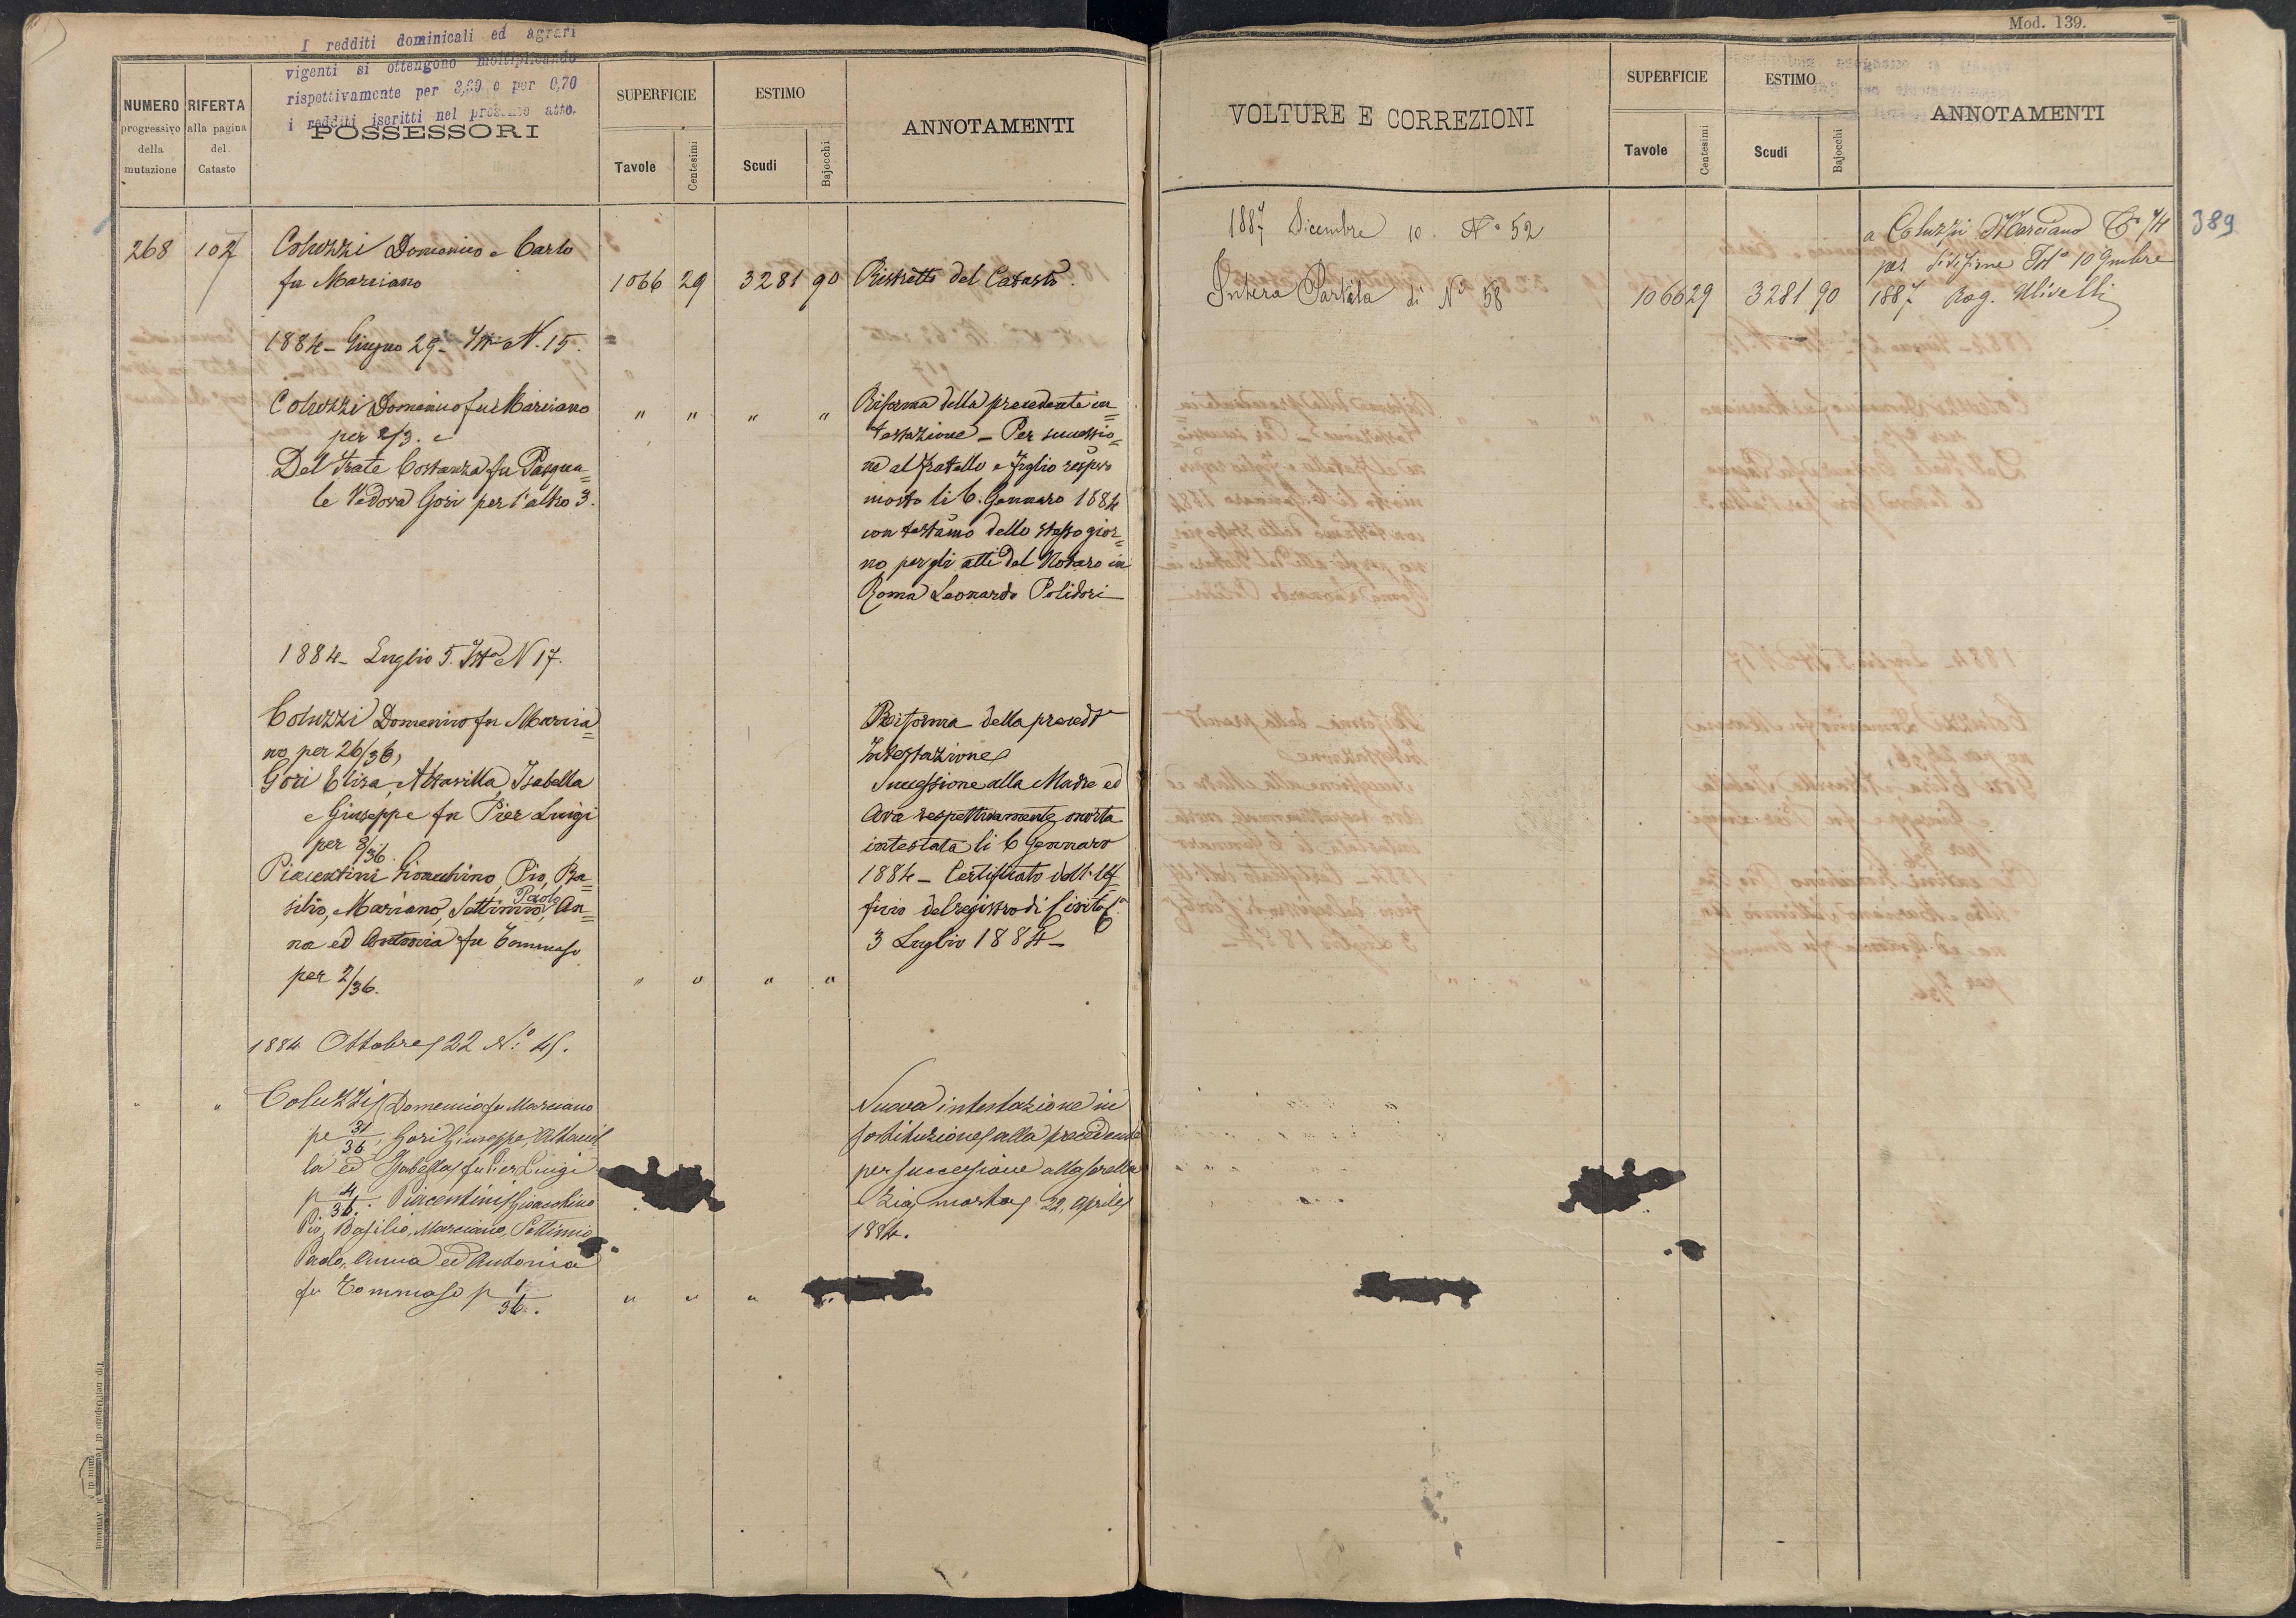 Mod. 139.
I redditi dominicali ed agrari
vigenti si ottengono moltiplicando
rispettivamente per 3,60 e per 0,70
i redditi iscritti nel presente atto.
NUMERO progressivo della mutazione
RIFERTA alla pagina del Catasto
POSSESSORI
SUPERFICIE
Tavole
Centesimi
ESTIMO
Scudi
Bajocchi
ANNOTAMENTI
268 102 Coluzzi Domenico e Carlo
fu Marciano 1066 29 3281 90 Ristretto del Catasto.
1884 – Giugno 29 – Ista N. 15.
Coluzzi Domenico fu Marciano " " " "
per 2/3. e
Del Frate Costanza fu Pasqua=
le Vedova Gori per l'altro 3.
Riforma della precedente in=
testazione – Per successio=
ne al fratello e figlio respvo
morto li 6. Gennaro 1884
con testamo dello stesso gior=
no per gli atti del Notaro in
Roma Leonardo Polidori
1884 – Luglio 5. Ista N 17.
Coluzzi Domenico fu Marcia=
no per 26/36,
Gori Elisa, Altavilla, Isabella
e Giuseppe fu Pier Luigi
per 8/36.
Piacentini Gioacchino, Pio, Ba=
silio, Mariano, Settimio, Paolo, An=
na ed Antonia fu Tommaso
per 2/36. " " " "
Riforma della precedte
Intestazione
Successione alla Madre ed
Ava respettivamente morta
intestata li 6 Gennaro
1884 – Certificato dell'Uf=
ficio del registro di
3 Luglio 1884 –
1884 Ottobre 22 No: 45.
" " Coluzzi Domenico fu Marciano
pe 31/36, Gori Giuseppe, Altavil
la ed Isabella fu Pier Luigi
p 4/36. Piacentini Gioacchino
Pio, Basilio, Marciano, Settimio
Paolo, Anna ed Antonia
fu Tommaso p 1/36. " " " "
Nuova intestazione in
sostituzione alla precedente
per successione alla sorella
e Zia, morta 22, Aprile
1884.
VOLTURE E CORREZIONI
SUPERFICIE
Tavole
Centesimi
ESTIMO
Scudi
Bajocchi
ANNOTAMENTI
389
1887 Dicembre 10. No 52
Intera Partita di No 58 1066 29 3281 90
a Coluzzi Marciano
per divisione Ista 10 9mbre
1887 Rog. Ulivelli